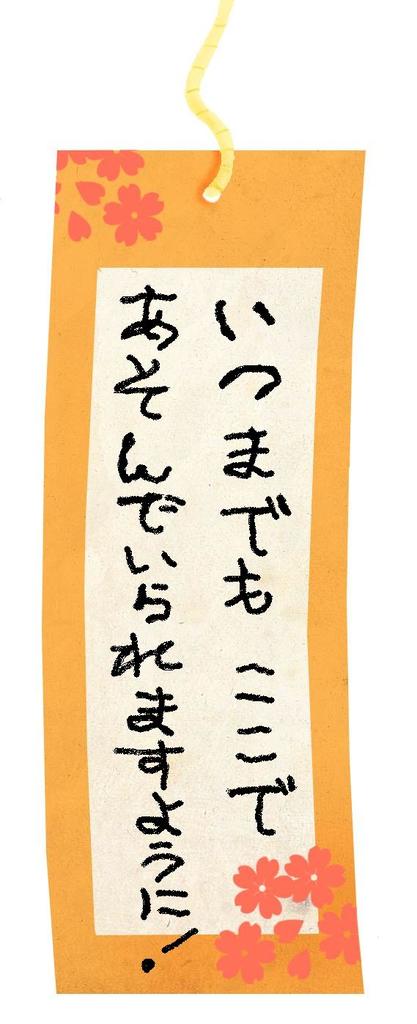 いつまでも ここで
あそんでいられますように!